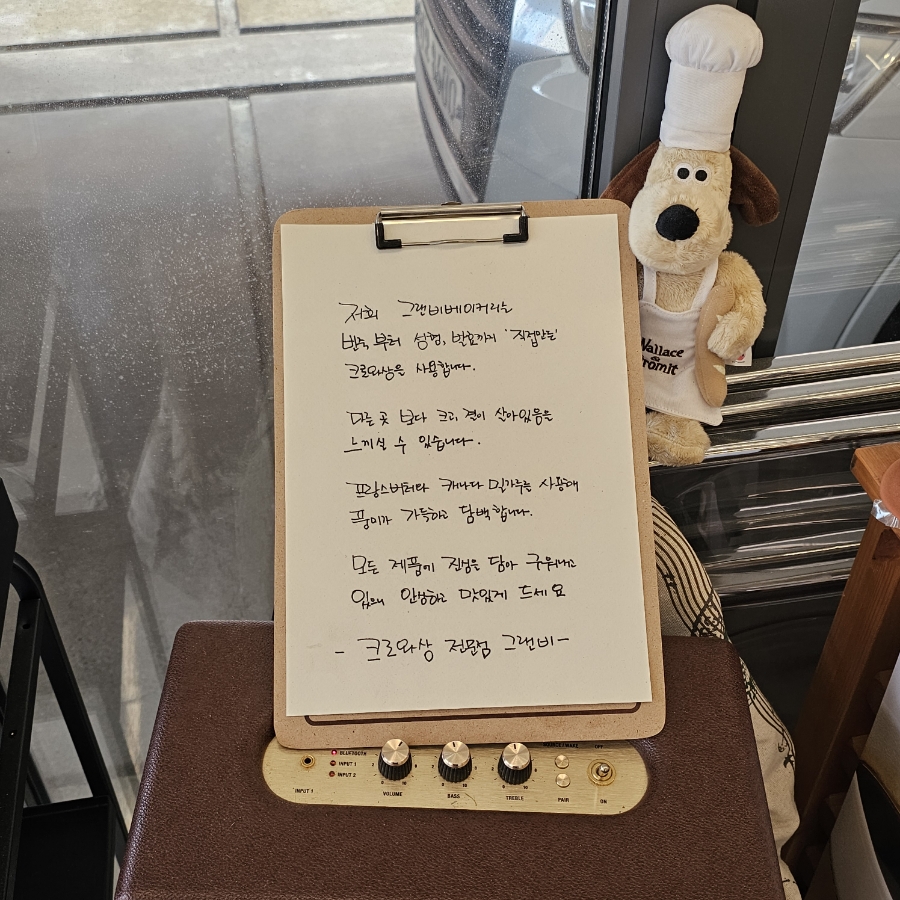 저희 그랜비베이커리는
반죽부터 성형, 발효까지 '직접만든'
크로와상을 사용합니다.
다른 곳 보다 크고, 결이 살아있음을
느끼실 수 있습니다.
프랑스버터와 캐나다 밀가루를 사용해
풍미가 가득하고 담백합니다.
모든 제품에 진심을 담아 구워내고
있으니 안심하고 맛있게 드세요
- 크로와상 전문점 그랜비 -
Wallace
&
Gromit
BLUETOOTH
INPUT 1
INPUT 2
INPUT 1
VOLUME
BASS
TREBLE
PAIR
OFF
ON